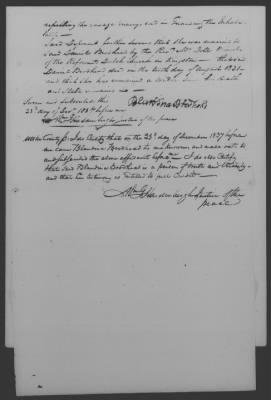 repelling the savage enemy and in Guarding the Inhabi-
tants
Said Deponent further swears that she was married to
said Daniel Brodhead by the Rev'd Mr.
of the Reformed Dutch Church in Kingston the said
Daniel Brodhead died on the tenth day of August 1831
and that she has remained a widow since his death
and still remains so
Sworn and subscribed this
23d day of Dec'r 1837 before me
Blandina Brodhead
Justice of the peace
Ulster County Ss. I do Certify that on the 23d day of December 1837 before
me came Blandina Brodhead to me known and made oath to
and subscribed the above affidavit before me I do also Certify
that said Blandina Brodhead is a person of truth and veracity
and that her testimony is entitled to full Credit
Justice of the
peace